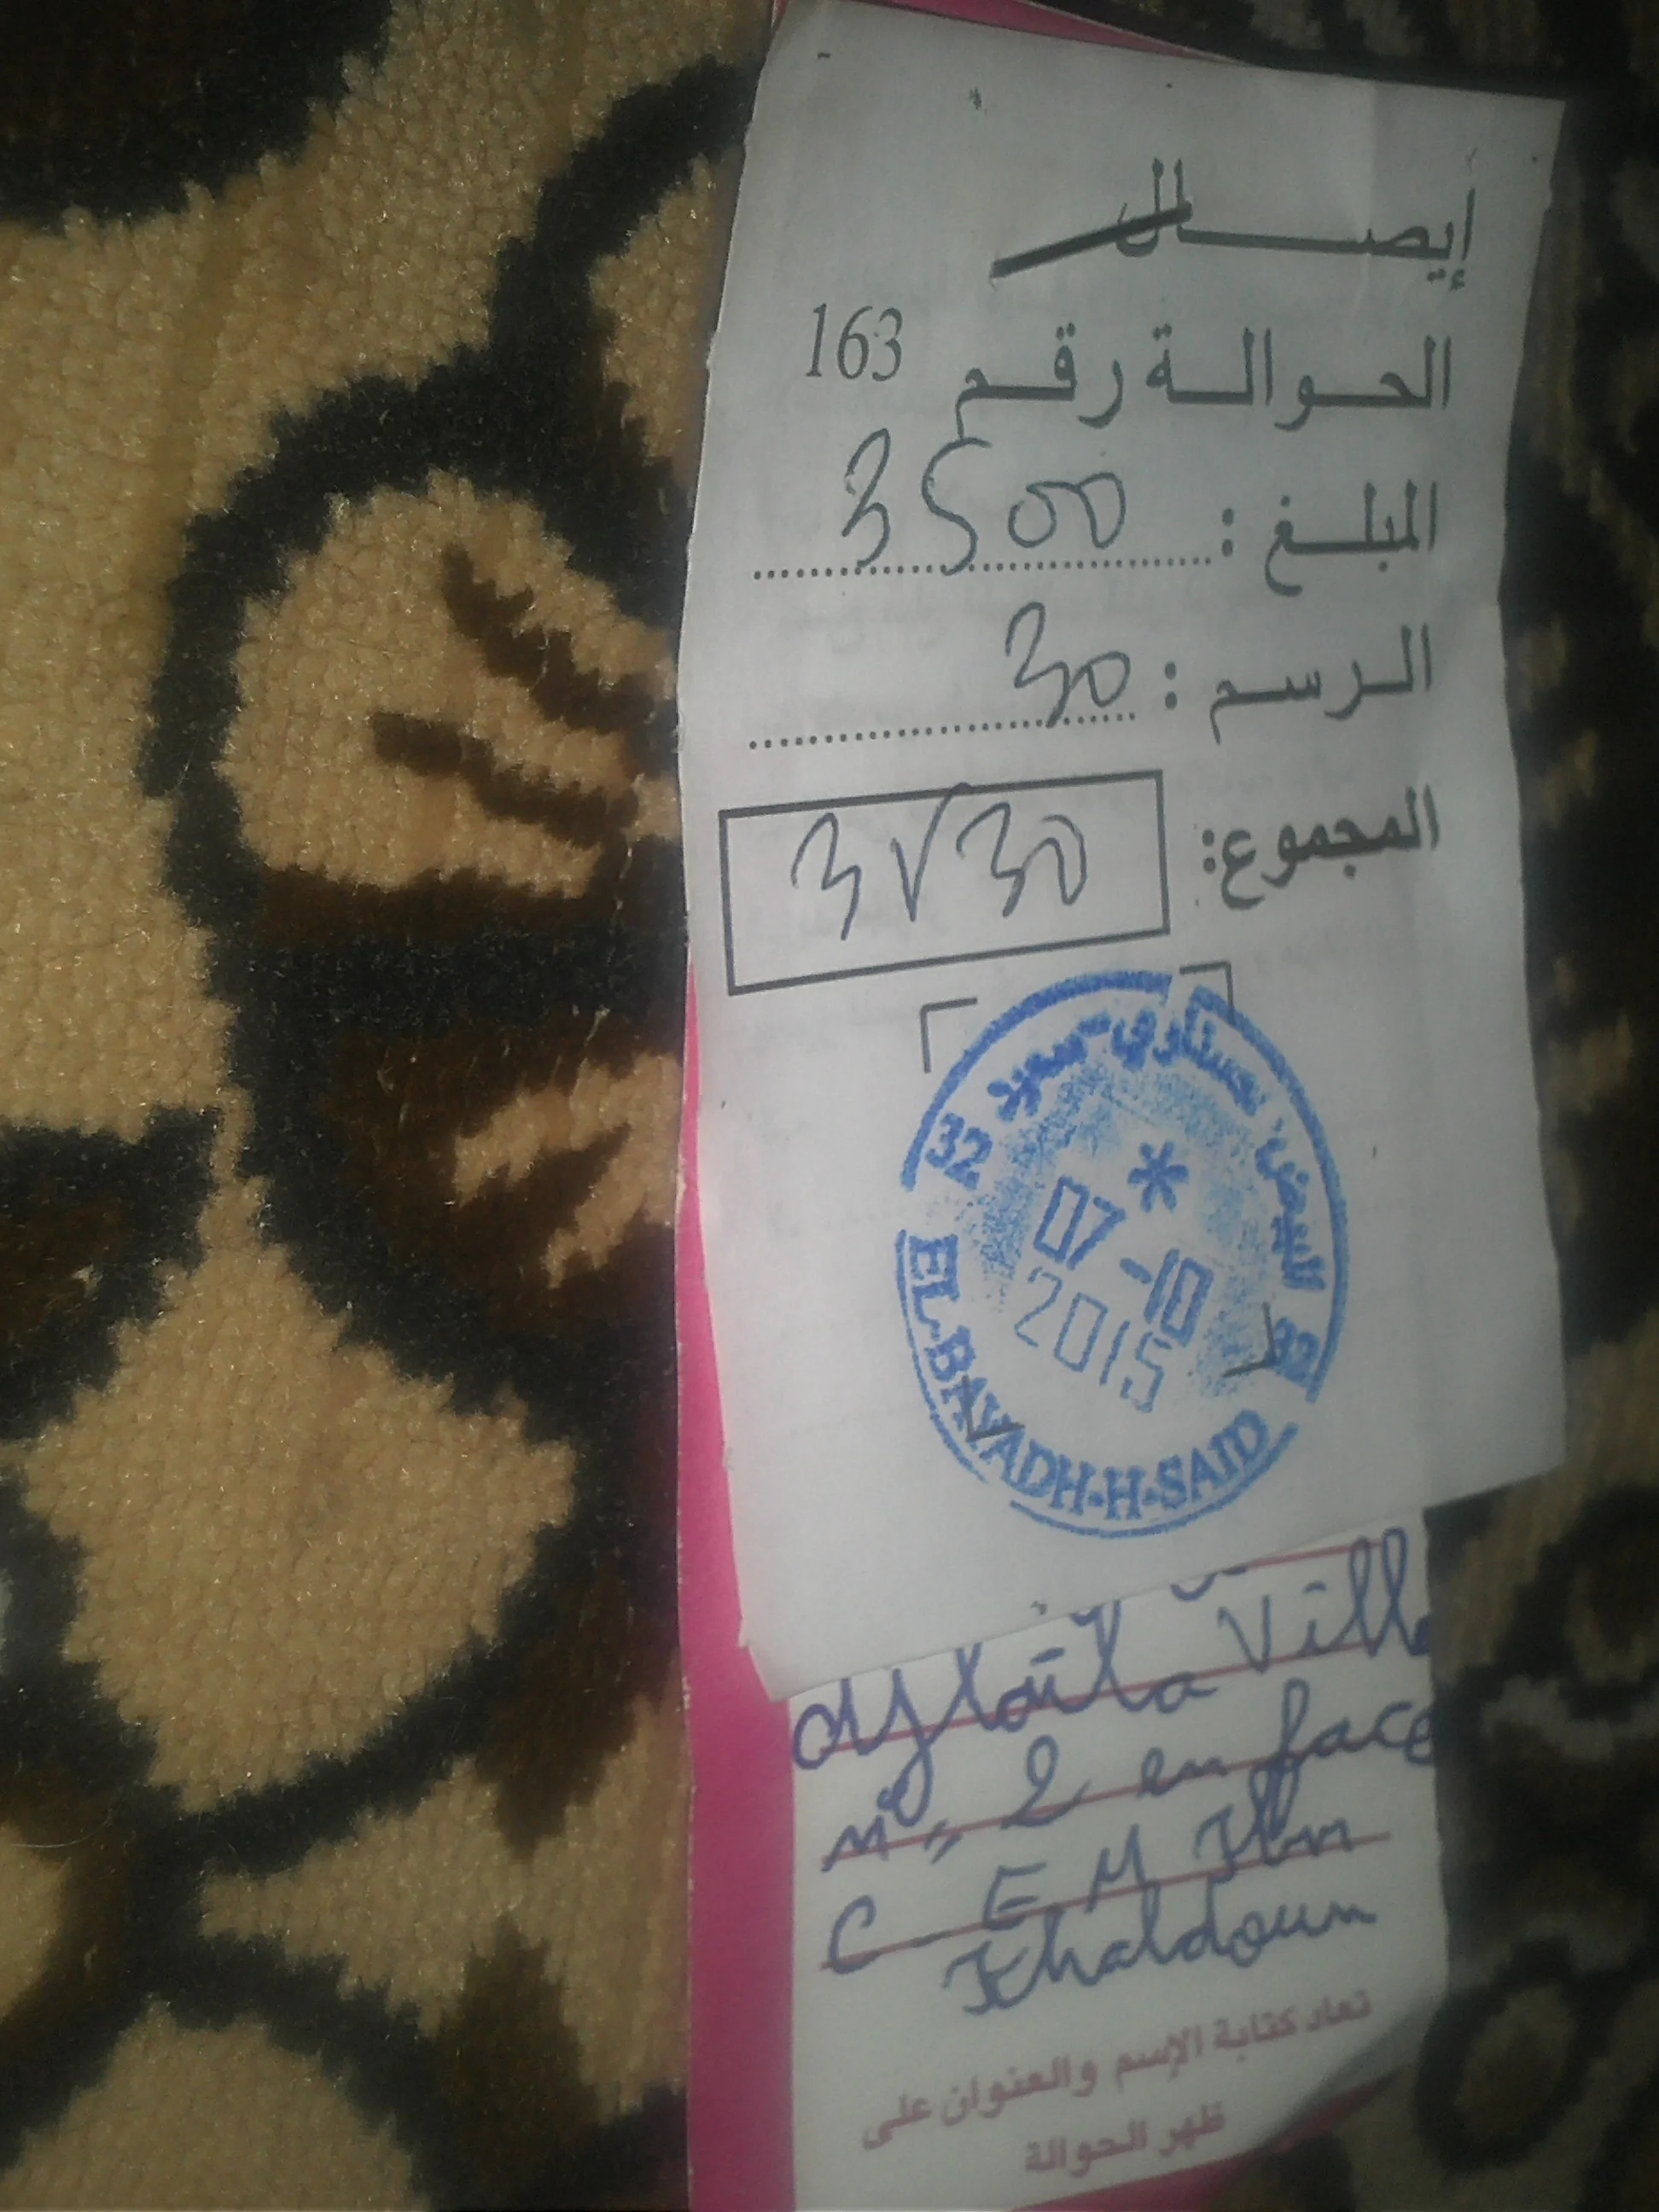 إيصال
الحوالة رقم 163
المبلغ : 3500
الرسم : 30
المجموع: 3V30
32 البيض حستاوي سعيد 32
07-10
2015
EL-BAYADH-H-SAID
Ville
n° 2 en face
C E M Ibn
Khaldoun
تعاد كتابة الإسم والعنوان على
ظهر الحوالة